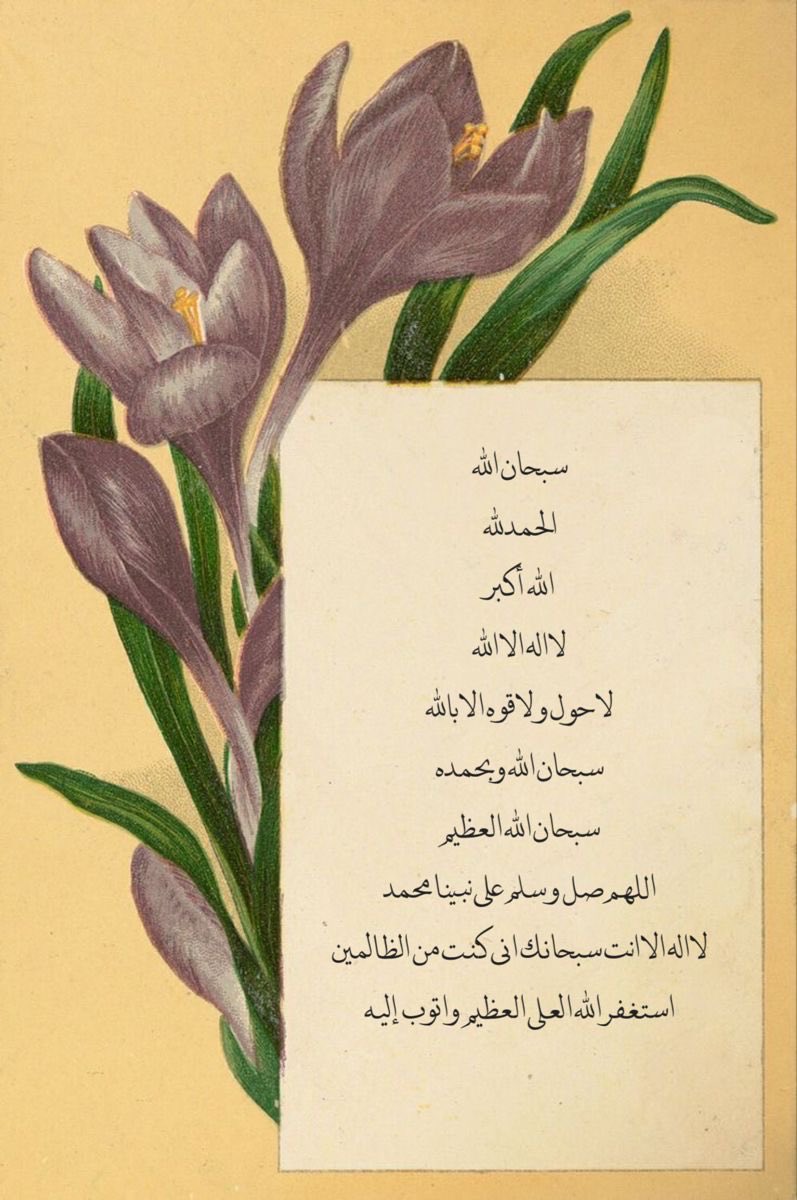 سبحان الله
الحمدلله
الله أكبر
لا اله الا الله
لا حول ولا قوه الا بالله
سبحان الله وبحمده
سبحان الله العظيم
اللهم صل وسلم على نبينا محمد
لا اله الا انت سبحانك انى كنت من الظالمين
استغفر الله العلى العظيم واتوب إليه